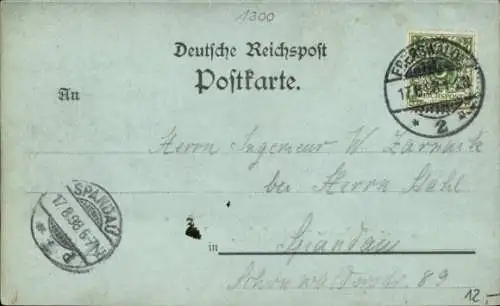 1300
Deutsche Reichspost
Postkarte.
An
EBERSWALDE
17.8.98
* 2 *
Herrn Ingenieur W. Zarnack
bei Herrn Stahl
in Spandau
Schönwalderstr 89
SPANDAU
17.8.98.6-7N.
12.-